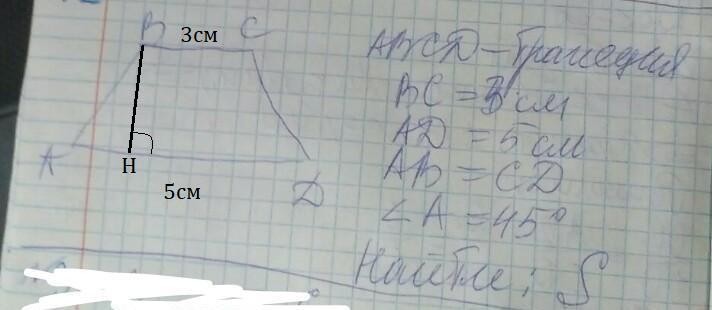 B 3см C
A H 5см D
ABCD - трапеция
BC = 3 см
AD = 5 см
AB = CD
∠A = 45°
Найти: S